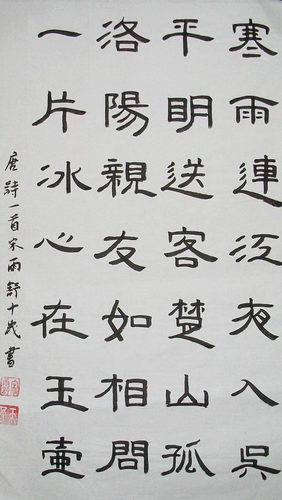 寒雨連江夜入吳
平明送客楚山孤
洛陽親友如相問
一片冰心在玉壺
唐詩一首宋雨舒十歲書